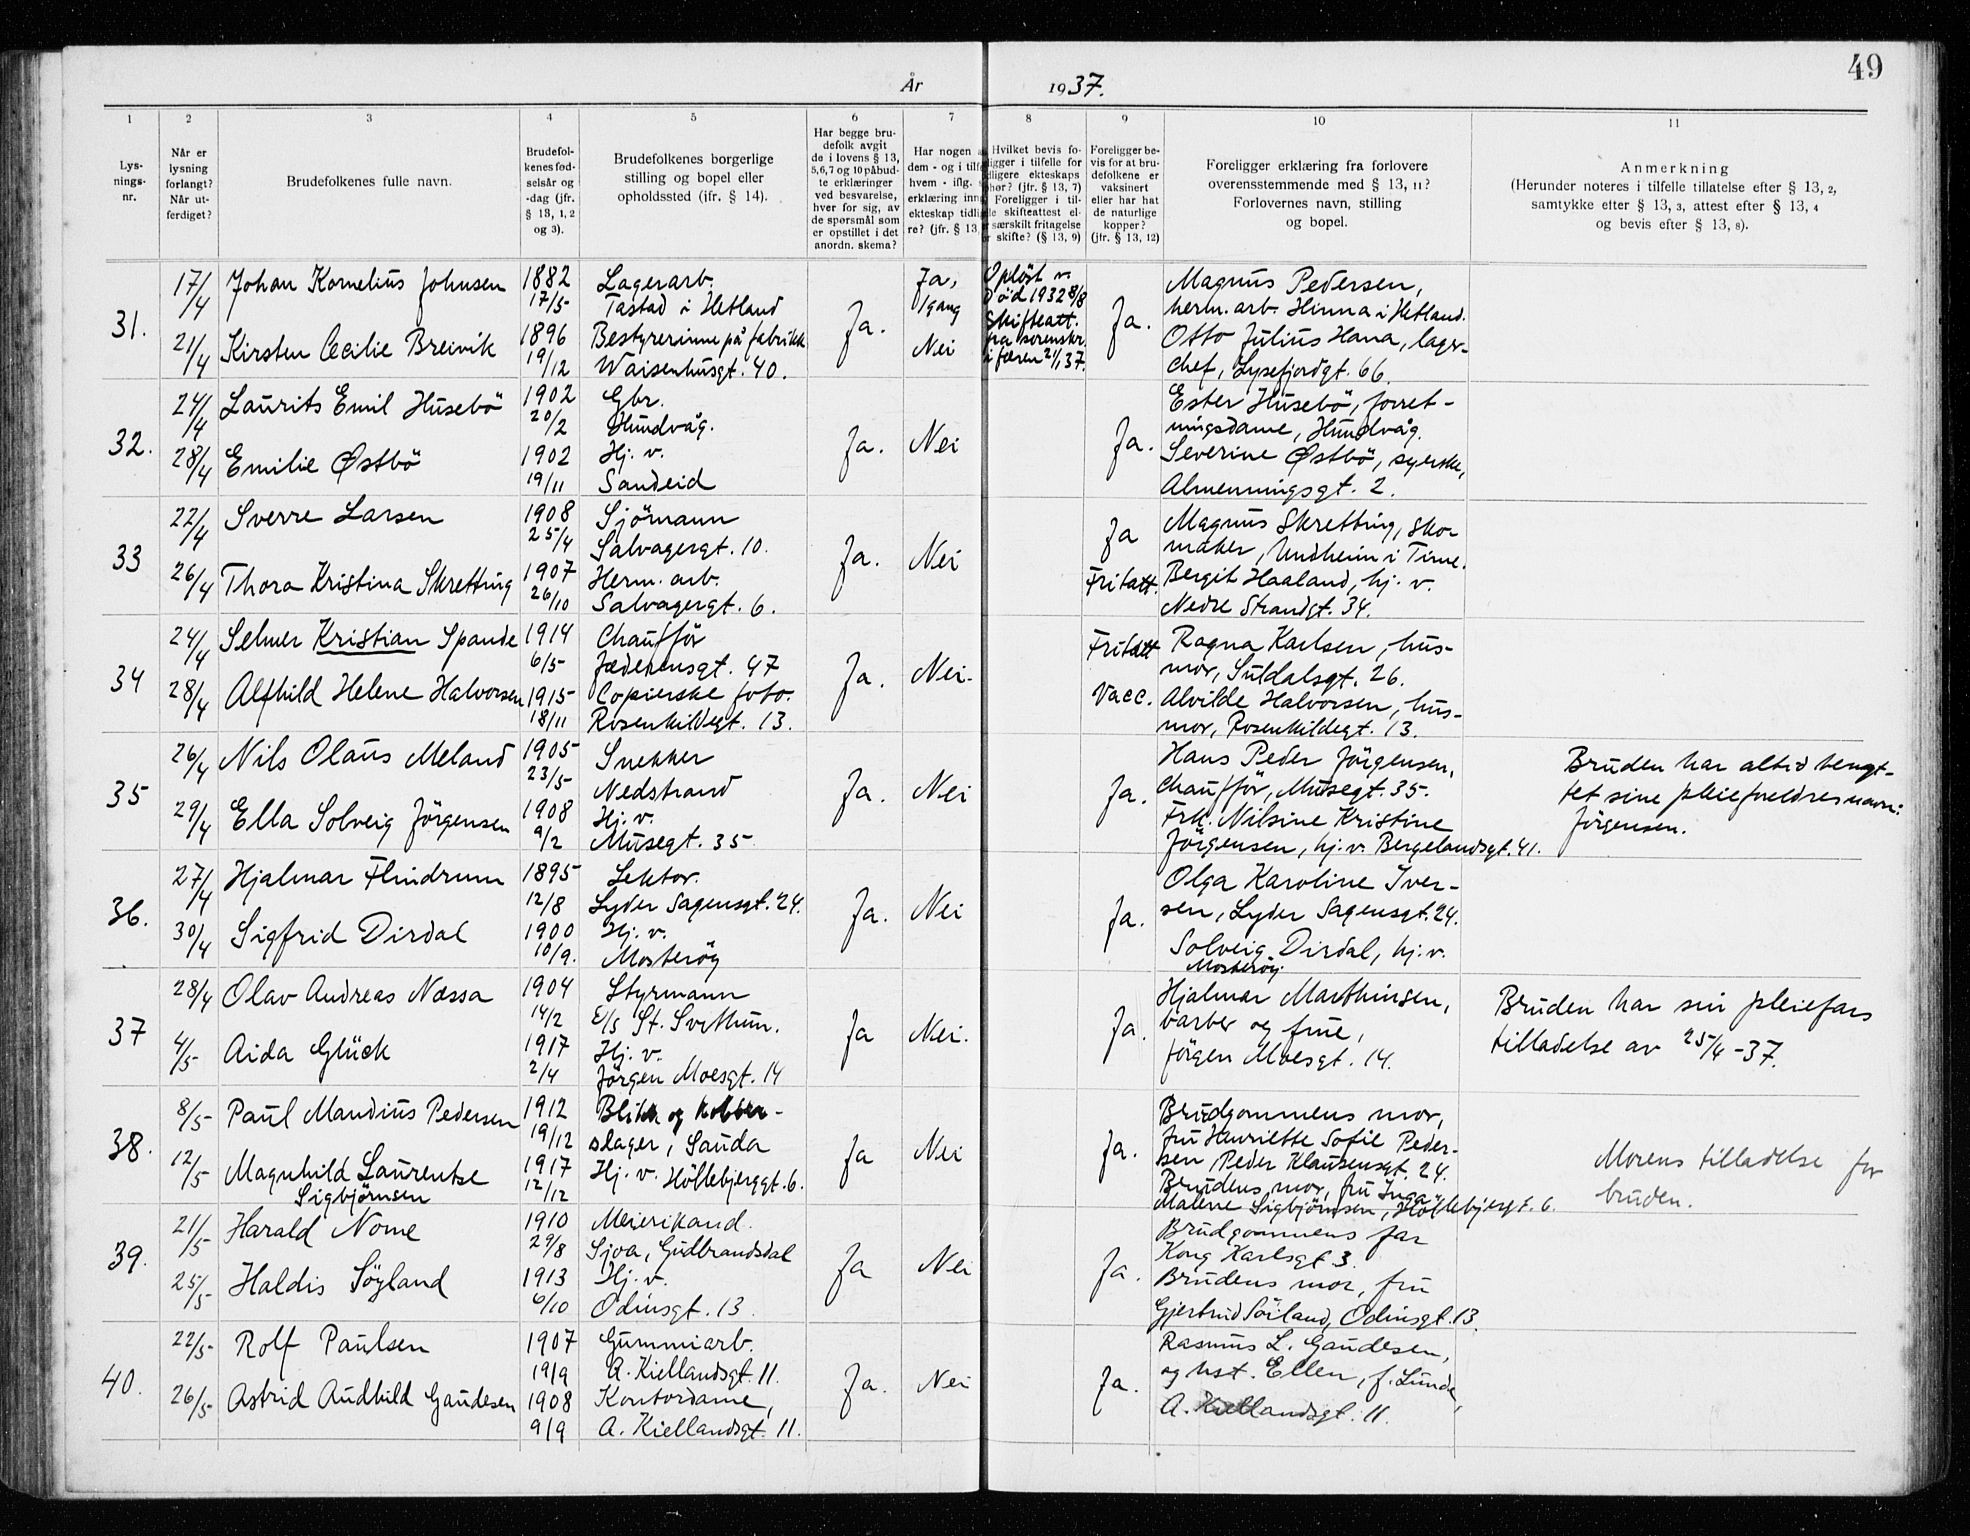 49
År 1937.
1 2 3 4 5 6 7 8 9 10 11
Lys-
nings-
nr.
Når er
lysning
forlangt?
Når ut-
ferdiget?
Brudefolkenes fulle navn.
Brudefol-
kenes fød-
selsår og
-dag (jfr.
§ 13, 1, 2
og 3).
Brudefolkenes borgerlige
stilling og bopel eller
opholdssted (ifr. § 14).
Har begge bru-
defolk avgit
de i lovens § 13,
5,6,7 og 10 påbud-
te erklæringer
ved besvarelse,
hver for sig, av
de spørsmål som
er opstillet i det
anordn. skema?
Har nogen a
dem - og i tilf
hvem - iflg.
erklæring inng
ekteskap tidli
re? (jfr. § 13,
Hvilket bevis fo-
ligger i tilfelle for
dligere ekteskaps
phør? (jfr. § 13, 7)
Foreligger i til-
le skifteattest el-
særskilt fritagelse
skifte? (§ 13, 9)
Foreligger be-
vis for at bru-
defolkene er
vaksinert
eller har hat
de naturlige
kopper?
(jfr. § 13, 12)
Foreligger erklæring fra forlovere
overensstemmende med § 13, 11?
Forlovernes navn, stilling
og bopel.
Anmerkning
(Herunder noteres i tilfelle tillatelse efter § 13, 2,
samtykke efter § 13, 3, attest efter § 13, 4
og bevis efter § 13, 8).
31.
17/4 Johan Kornelius Johnsen 1882
17/5
Lagerarb.
Tastad i Hetland
21/4 Kirsten Cecilie Breivik 1896
19/12
Bestyrerinne på fabrikk
Waisenhusgt. 40.
Ja.
Ja,
1 gang
Nei
Opløst v.
Død 1932 8/8
Skifteatt.
fra sorenskr.
i Jæren 21/1 37.
Ja.
Magnus Pedersen,
herm. arb. Hinna i Hetland.
Otto Julius Hana, lager-
chef, Lysefjordgt. 66.
32.
24/4 Laurits Emil Husebö 1902
20/2
Gbr.
Hundvåg.
28/4 Emilie Østbö 1902
19/11
Hj. v.
Sandeid
Ja. Nei Ja.
Ester Husebö, forret-
ningsdame, Hundvåg.
Severine Østbö, syerske,
Almenningsgt. 2.
33
22/4 Sverre Larsen 1908
25/4
Sjömann
Salvagergt. 10.
26/4 Thora Kristina Skretting 1907
26/10
Herm. arb.
Salvagergt. 6.
Ja. Nei
Ja
Fritatt.
Magnus Skretting, sko-
maker, Undheim i Time.
Bergit Haaland, hj. v.
Nedre Strandgt. 34.
34
24/4 Selmer Kristian Spande 1914
6/5
Chaufför
Jæderensgt. 47
28/4 Alfhild Helene Halvorsen 1915
18/11
Copierske foto.
Rosenkildegt. 13.
Ja. Nei.
Fritatt
Vacc.
Ragna Karlsen, hus-
mor, Suldalsgt. 26.
Alvilde Halvorsen, hus-
mor, Rosenkildegt. 13.
35
26/4 Nils Olaus Meland 1905
23/5
Snekker
Nedstrand
29/4 Ella Solveig Jörgensen 1908
9/2
Hj. v.
Musegt. 35
Ja. Nei Ja.
Hans Peder Jörgensen,
Chaufför, Musegt. 35.
Frk. Nilsine Kristine
Jörgensen, hj. v. Bergelandsgt. 41.
Bruden har altid bengt-
tet sine pleieforeldres navn:
Jörgensen.
36.
27/4 Hjalmar Flindrum 1895
12/8
Lektor.
Lyder Sagensgt. 24.
30/4 Sigfrid Dirdal 1900
10/9.
Hj. v.
Mosteröy
Ja. Nei Ja.
Olga Karoline Iver-
sen, Lyder Sagensgt. 24.
Solveig Dirdal, hj. v.
Mosteröy.
37
28/4 Olav Andreas Næssa 1904
14/2
Styrmann
E/S St. Svithun.
4/5 Aida Glück 1917
2/4
Hj. v.
Jörgen Moesgt. 14
Ja Nei. Ja.
Hjalmar Marthinsen,
barber og frue,
Jörgen Moesgt. 14.
Bruden har sin pleiefars
tilladelse av 25/4-37.
38.
8/5 Paul Mandius Pedersen 1912
19/12
Blikk og kobber-
slager, Sauda
12/5 Magnhild Laurentse
Sigbjörnsen
1917
12/12
Hj. v. Höllebjerggt. 6.
Ja Nei Ja.
Brudgommens mor,
fru Henriette Sofie Peder-
sen, Peder Klausensgt. 24.
Brudens mor, fru Inga
Malene Sigbjörnsen, Höllebjergt. 6.
Morens tilladelse for
bruden.
39.
21/5 Harald Nome 1910
29/8
Meierikand.
Sjoa, Gudbrandsdal
25/5 Haldis Söyland 1913
6/10
Hj. v.
Odinsgt. 13.
Ja Nei Ja.
Brudgommens far
Kong Karlsgt 3.
Brudens mor, fru
Gjertrud Söiland, Odinsgt. 13.
40.
22/5 Rolf Paulsen 1907
19/9
Gummiarb.
A. Kiellandsgt. 11.
26/5 Astrid Audhild Gaudesen 1908
9/9
Kontordame,
A. Kiellandsgt. 11.
Ja. Nei Ja.
Rasmus L. Gaudesen,
og hst. Ellen, f. Lunde,
A. Kiellandsgt. 11.